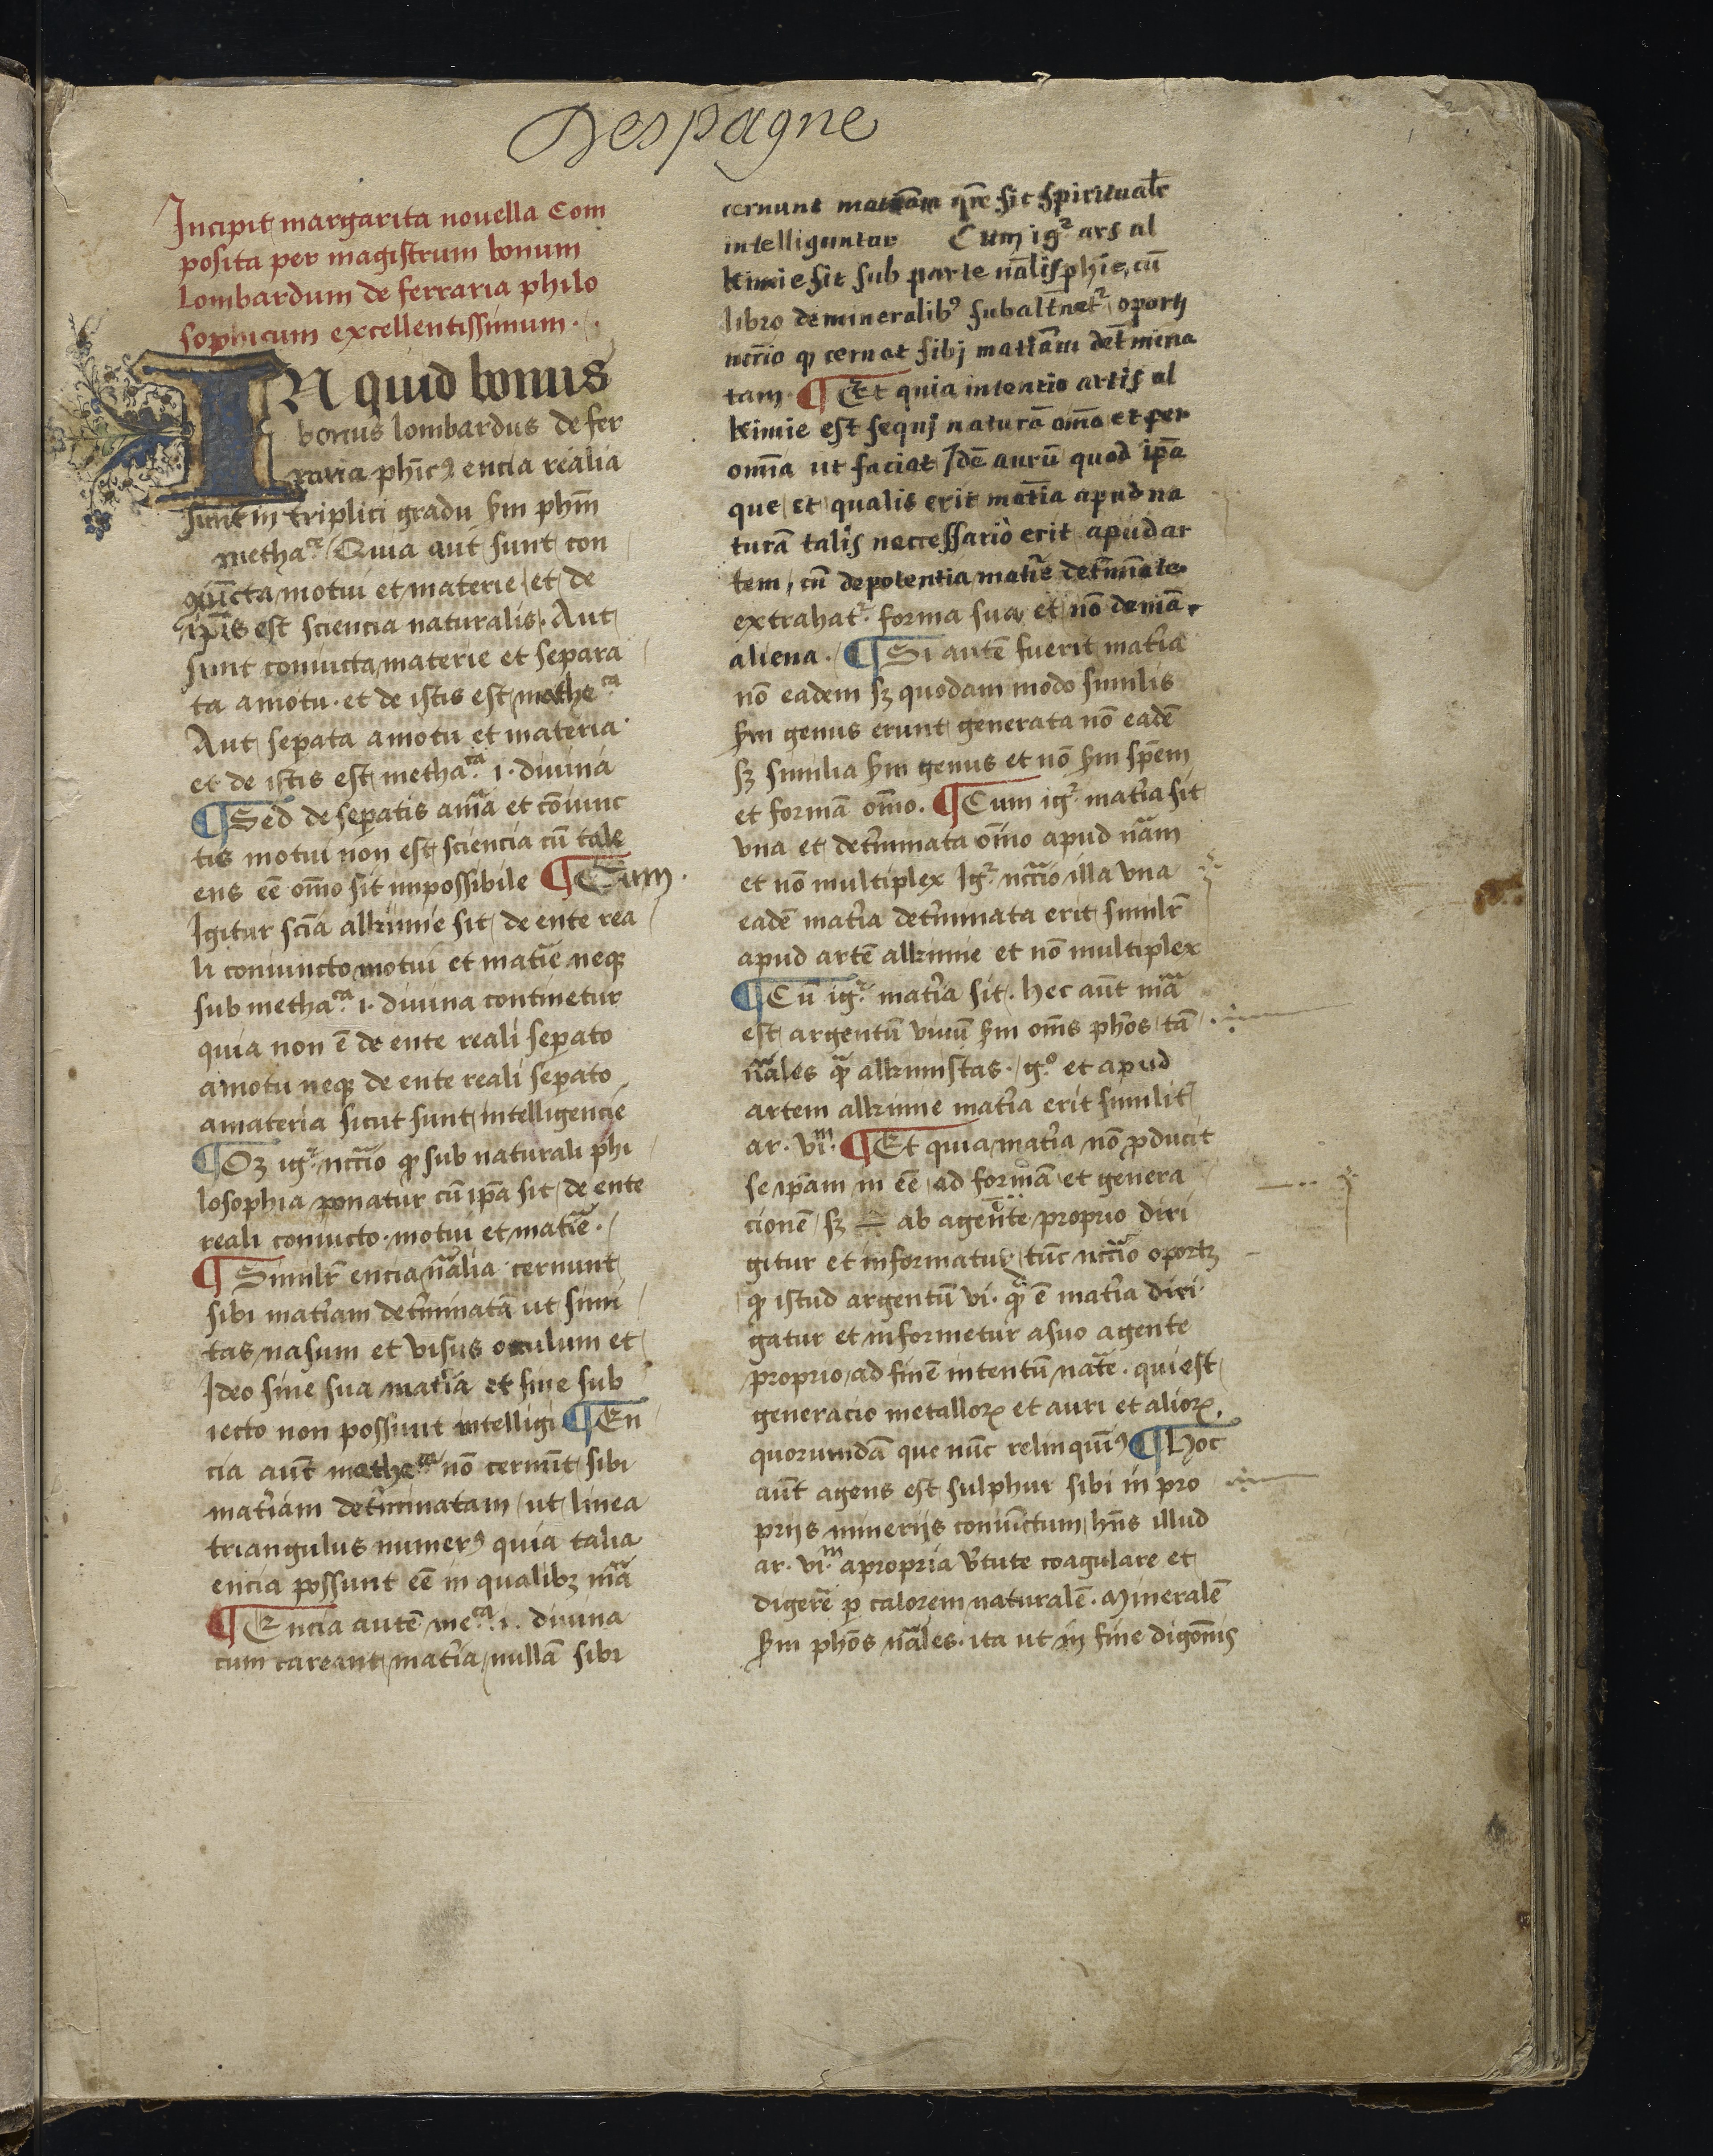 Despagne
Incipit margarita nouella Com
posita per magistrum bonum
lombardum de ferraria philo
sophicum excellentissimum.
IN quid bonus
bonus lombardus de fer
raria phīcꝰ encia realia
sunt in triplici gradu ẜm phm̄
metha.ca Quia aut sunt con
iūcta motui et materie et de
ip̄is est sciencia naturalis. Aut
sunt coniucta materie et separa
ta amotu. et de istis est mathe.ca
Aut seꝑata amotu et materia
et de istis est metha.ca i. diuina
¶ Sed de seꝑatis am̄a et cōiunc
tis motui non est sciencia cū tale
ens eē om̄o sit impossibile ¶ Cum
Igitur scīa alkimie sit de ente rea
li coniuncto motui et mat̄ie neqꝫ
sub metha.ca i. diuina continetur
quia non ē de ente reali seꝑato
amotu neqꝫ de ente reali seꝑato
amateria sicut sunt intelligencie
¶ Oꝫ ig.r ncc̄io ꝙ sub naturali phi
losophia ponatur cū ip̄a sit de ente
reali coniucto motui et mat̄ie.
¶ Similr̄ encia nālia cernunt
sibi mat̄iam det̄minatā ut simi
tas nasum et visus oculum et
Ideo sine sua mat̄ia et sine sub
iecto non possunt intelligi ¶ En
cia aūt mathe.ca nō cernūt sibi
mat̄iam det̄minatam ut linea
triangulus numerꝰ quia talia
encia possunt eē in qualibꝫ m̄a
¶ Encia autē me.ca i. diuina
cum careant mat̄ia nullā sibi
cernunt mat̄iam qr̄e sit spiritualr̄
intelliguntur Cum ig.r ars al
kimie sit sub parte nālis phīe, cū
libro de mineralibꝰ subalt̄net.r oportꝫ
ncc̄io ꝙ cernat sibj mat̄iam det̄mina
tam. ¶ Et quia intentio artis al
kimie est sequj naturā om̄o et per
om̄ia ut faciat Idē aurū quod ip̄a
que et qualis erit mat̄ia apud na
turā talis neccessario erit apud ar
tem, cū de potentia mat̄ie det̄minate
extrahat.r forma sua et nō de mā
aliena. ¶ Si autē fuerit mat̄ia
nō eadem sꝫ quodam modo similis
ẜm genus erunt generata nō eadē
sꝫ similia ẜm genus et nō ẜm sp̄em
et formā om̄o. ¶ Cum ig.r mat̄ia sit
vna et det̄minata om̄io apud nām
et nō multiplex Ig.r ncc̄io illa vna
eadē mat̄ia det̄minata erit similr̄
apud artē alkimie et nō multiplex
¶ Cū ig.r mat̄ia sit. hec aūt m̄a
est argentū viuū ẜm om̄s phōs tā
nāles qᷓ alkimistas. g.o et apud
artem alkimie mat̄ia erit similit̄
ar. vi.m ¶ Et quia mat̄ia nō ꝓducit
se ip̄am in eē ad formā et genera
cionē sꝫ ab agente proprio diri
gitur et informatur tūc ncc̄io oportꝫ
ꝙ istud argentū vi. qᷓ ē mat̄ia diri
gatur et informetur asuo agente
proprio ad finē intentū nāte. qui est
generacio metalloꝝ et auri et alioꝝ
quorumdā que nūc relinquimꝰ ¶ Hoc
aūt agens est sulphur sibi in pro
prijs minerijs coniūctum hn̄s illud
ar. vi.m apropria v̄tute coagulare et
digerē ꝑ calorem naturalē. Mineralē
ẜm phōs nāles. ita ut in fine digōnis